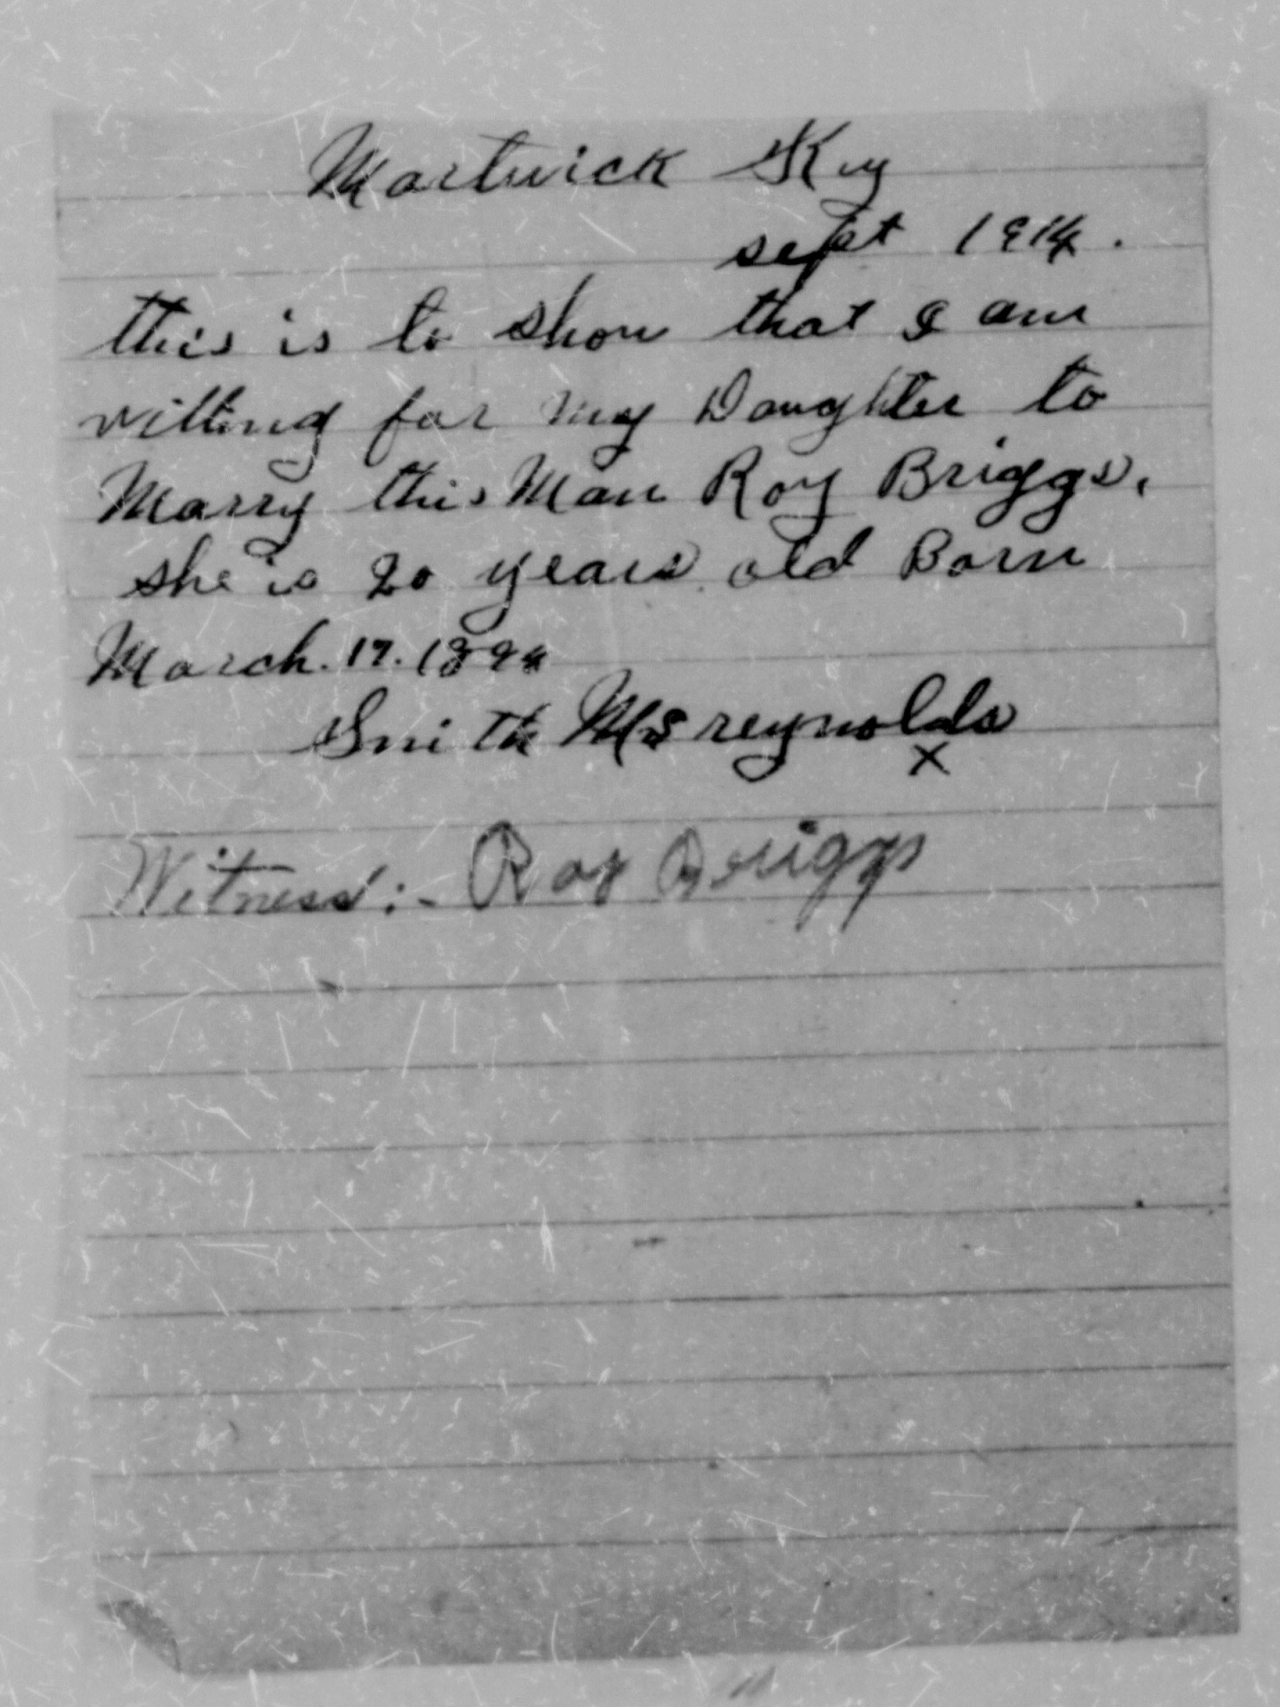 Martwick Ky
sept 1914.
this is to show that I am
villing for My Daughter to
Marry this Man Roy Briggs,
she is 20 years old Born
March. 17. 1894
Smith Mc reynolds
x
Witness:- Roy Briggs